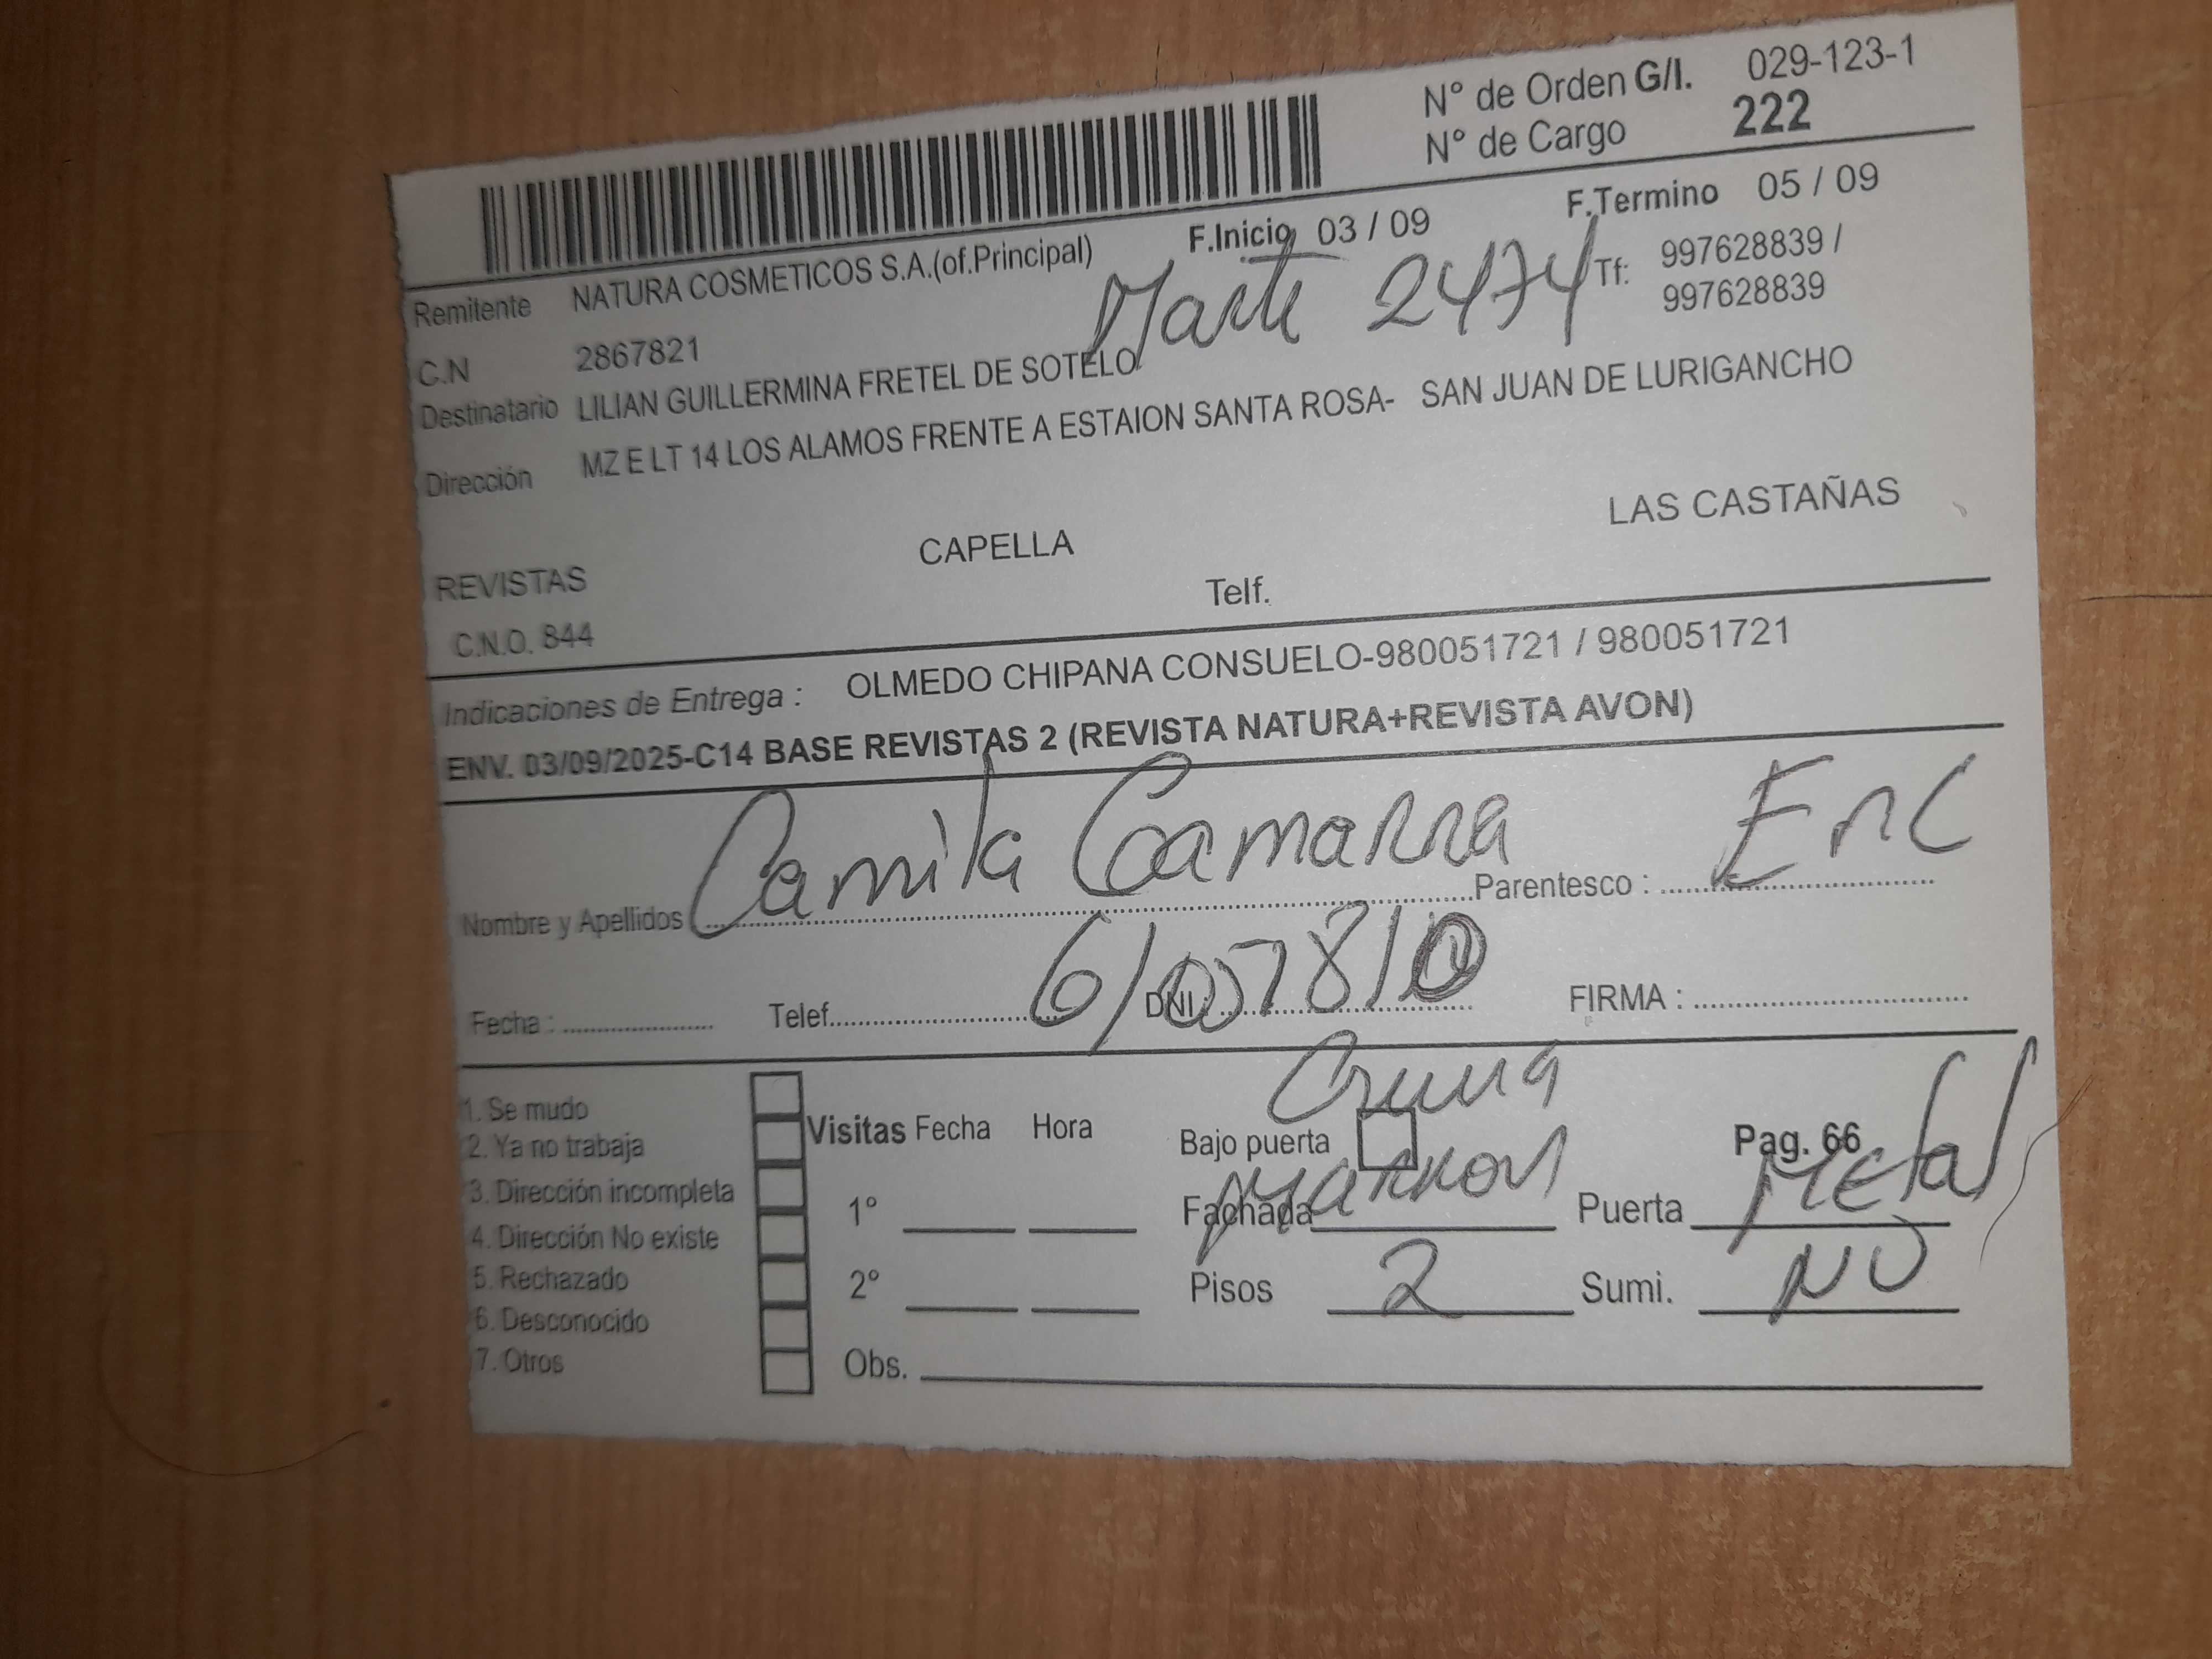 N° de Orden G/I. 029-123-1
N° de Cargo 222
F.Inicio 03 / 09 F.Termino 05 / 09
Remitente NATURA COSMETICOS S.A.(of.Principal) Tf: 997628839 /
997628839
Marte 2474
C.N 2867821
Destinatario LILIAN GUILLERMINA FRETEL DE SOTELO
Dirección MZ E LT 14 LOS ALAMOS FRENTE A ESTAION SANTA ROSA- SAN JUAN DE LURIGANCHO
REVISTAS CAPELLA LAS CASTAÑAS
C.N.O. 844 Telf.
Indicaciones de Entrega : OLMEDO CHIPANA CONSUELO-980051721 / 980051721
ENV. 03/09/2025-C14 BASE REVISTAS 2 (REVISTA NATURA+REVISTA AVON)
Nombre y Apellidos Camila Gamarra Parentesco : Enc
Fecha : Telef. DNI : FIRMA :
1. Se mudo
2. Ya no trabaja
3. Dirección incompleta
4. Dirección No existe
5. Rechazado
6. Desconocido
7. Otros
Visitas Fecha Hora
1°
2°
Obs.
Bajo puerta Pag. 66
Fachada Marron Puerta Metal
Pisos 2 Sumi. NO